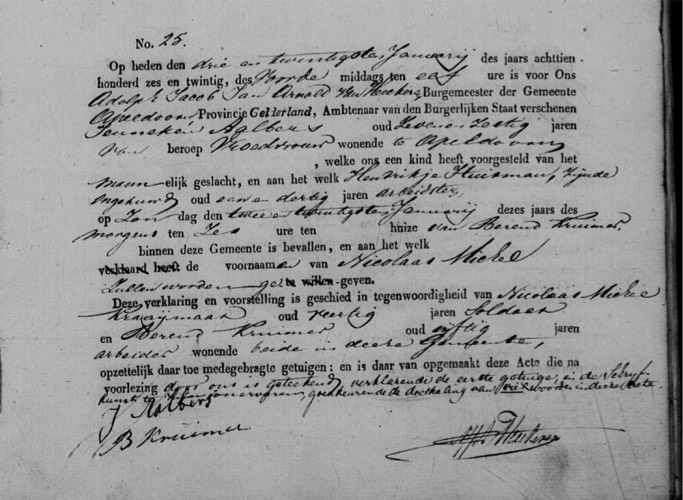 No. 25.
Op heden den drie en twintigste Januarij des jaars achttien
honderd zes en twintig, des Voorde middags ten elf ure is voor Ons
Adolph Jacob Jan Arnold van Burgemeester der Gemeente
Apeldoorn Provincie Gelderland, Ambtenaar van den Burgerlijken Staat verschenen
Jenneken Aalbers oud Zeven en Zestig jaren
van beroep Vroedvrouw wonende te Apeldoorn
, welke ons een kind heeft voorgesteld van het
mann elijk geslacht, en aan het welk Hendrikje Huisman, zijnde
ongehuwd oud een en dertig jaren arbeidster,
op Zon dag den twee en twintigste Januarij dezes jaars des
morgens ten Zes ure ten huize van Berend Kruimer,
binnen deze Gemeente is bevallen, en aan het welk
verklaard heeft de voornaamen van Nicolaas Michel
Zullen worden ge te willen geven.
Deze verklaring en voorstelling is geschied in tegenwoordigheid van Nicolaas Michel
Kraaijmaat oud veertig jaren Soldaat
en Berend Kruimer oud vijftig jaren
arbeider wonende beide in deze Gemeente,
opzettelijk daar toe medegebragte getuigen: en is daar van opgemaakt deze Acte die na
voorlezing door ons is geteekend, verklarende de eerste getuige, in de schrijf
kunst te zijn onervaren, goedkeurende de doorhaling van drie woorden in deze acte.
J Aalbers
B Kruimer